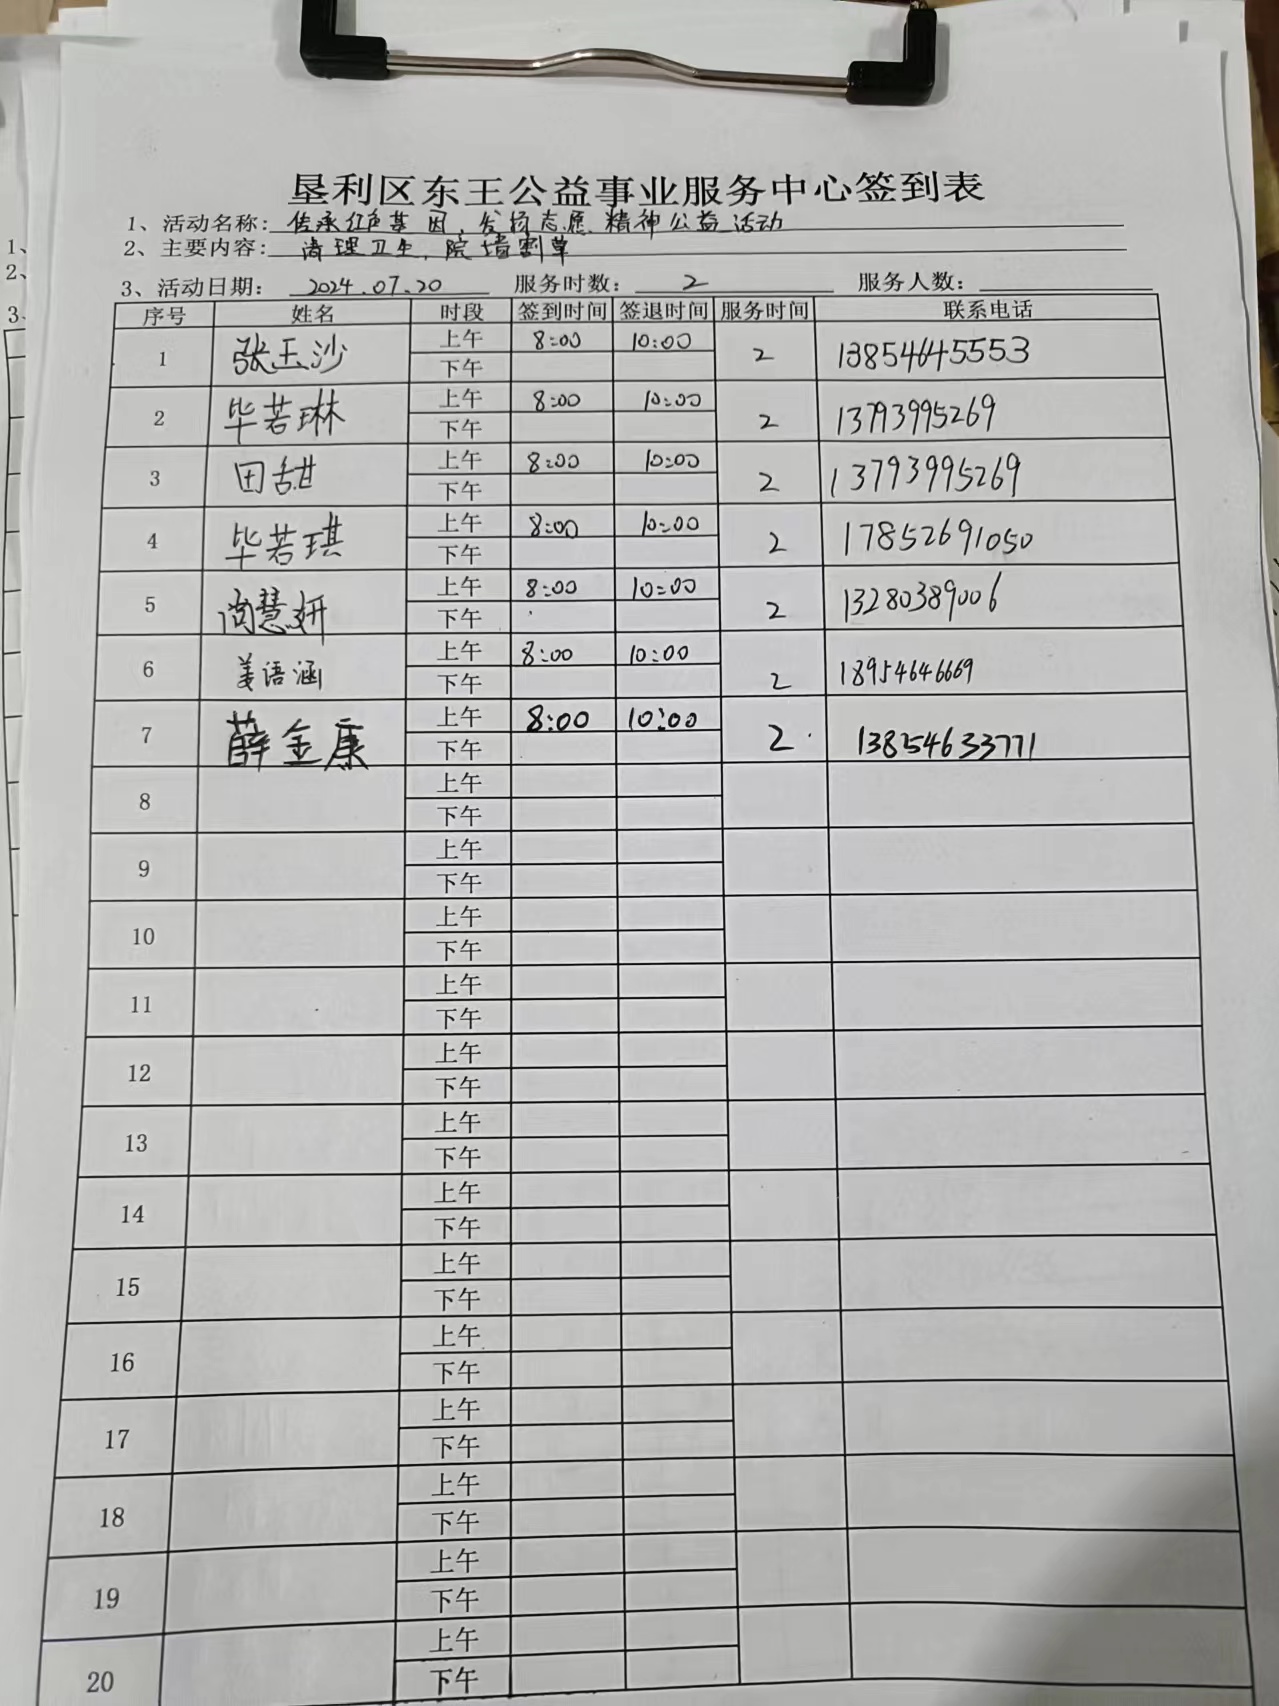 垦利区东王公益事业服务中心签到表
1、活动名称：传承红色基因，发扬志愿精神公益活动
2、主要内容：清理卫生，院墙割草
3、活动日期：2024.07.20 服务时数：2 服务人数：
序号 姓名 时段 签到时间 签退时间 服务时间 联系电话
1 张玉沙 上午 8:00 10:00 2 13854645553
下午
2 毕若琳 上午 8:00 10:00 2 13793995269
下午
3 田甜 上午 8:00 10:00 2 13793995269
下午
4 毕若琪 上午 8:00 10:00 2 17852691050
下午
5 尚慧妍 上午 8:00 10:00 2 13280389006
下午
6 姜语涵 上午 8:00 10:00 2 18954646669
下午
7 薛金康 上午 8:00 10:00 2 13854633771
下午
8 上午
下午
9 上午
下午
10 上午
下午
11 上午
下午
12 上午
下午
13 上午
下午
14 上午
下午
15 上午
下午
16 上午
下午
17 上午
下午
18 上午
下午
19 上午
下午
20 上午
下午
1、
2、
3、